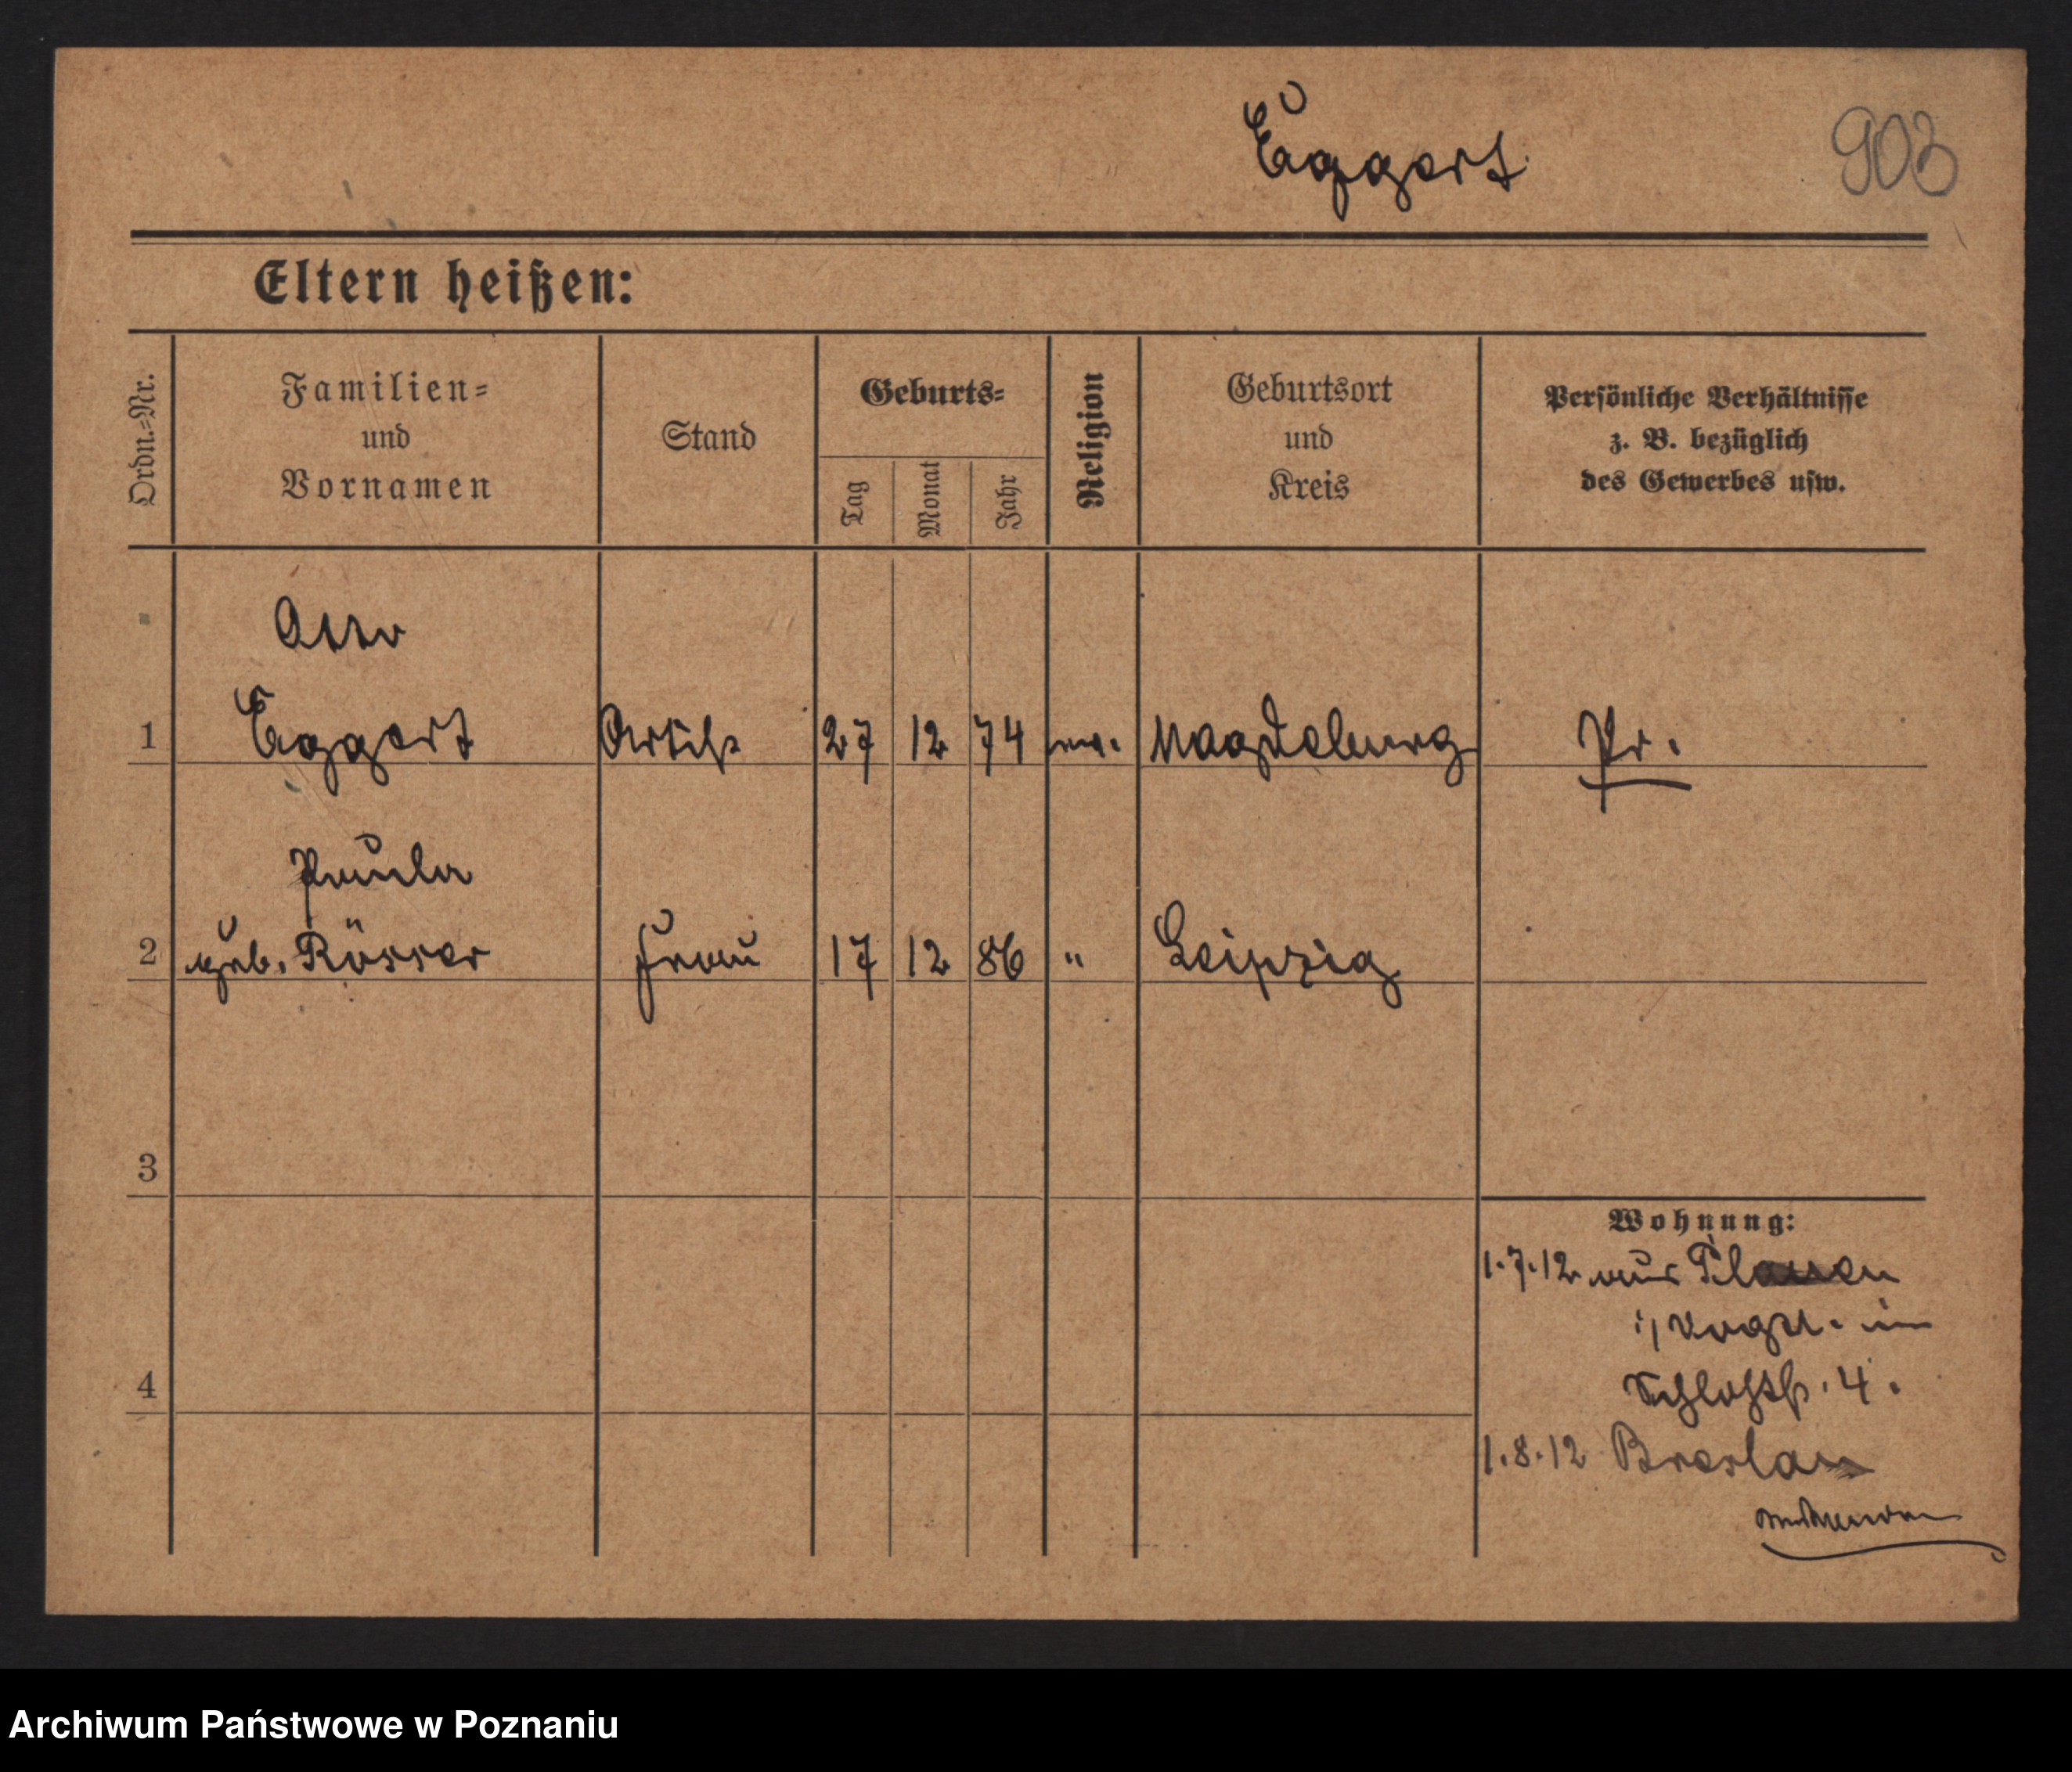 Eggert
903
Eltern heißen:
Ordn.-Nr.
Familien-
und
Vornamen
Stand
Geburts-
Tag
Monat
Jahr
Religion
Geburtsort
und
Kreis
Persönliche Verhältnisse
z. B. bezüglich
des Gewerbes usw.
Otto
1 Eggert Artist 27 12 74 ev. Magdeburg Pr.
Paula
2 geb. Rösser Frau 17 12 86 " Leipzig
3
Wohnung:
1.7.12 aus Plauen
i/Vogtl. in
Schloßstr. 4.
4
1.8.12 Breslau
Archiwum Państwowe w Poznaniu